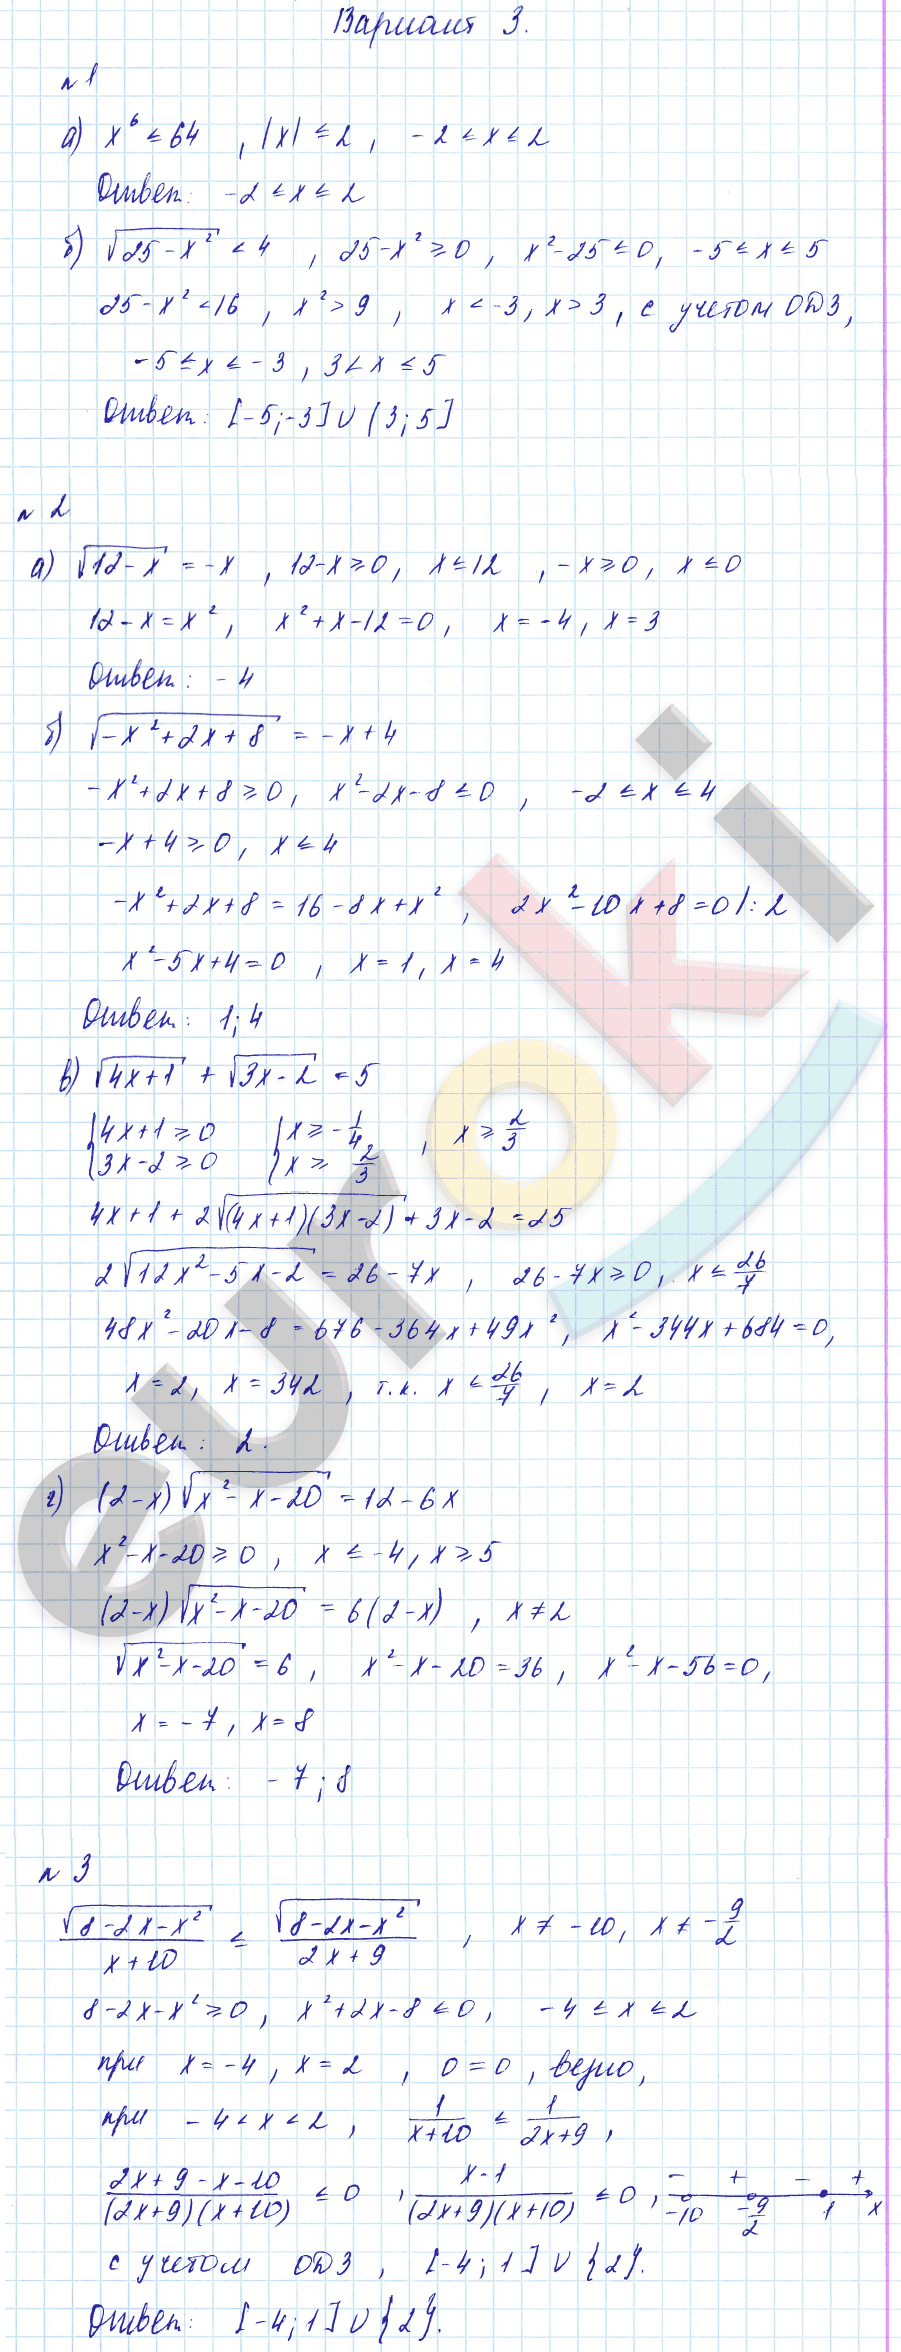 Вариант 3.
n 1
а) x⁶ ≤ 64 , |x| ≤ 2 , -2 ≤ x ≤ 2
Ответ: -2 ≤ x ≤ 2
б) √(25-x²) < 4 , 25-x² ≥ 0 , x²-25 ≤ 0, -5 ≤ x ≤ 5
25-x² < 16 , x² > 9 , x < -3, x > 3 , с учетом ОДЗ,
-5 ≤ x < -3 , 3 < x ≤ 5
Ответ: [-5;-3] ∪ (3;5]
n 2
а) √(12-x) = -x , 12-x ≥ 0, x ≤ 12 , -x ≥ 0, x ≤ 0
12-x = x², x²+x-12=0, x=-4, x=3
Ответ: -4
б) √(-x²+2x+8) = -x+4
-x²+2x+8 ≥ 0, x²-2x-8 ≤ 0 , -2 ≤ x ≤ 4
-x+4 ≥ 0, x ≤ 4
-x²+2x+8 = 16-8x+x² , 2x²-10x+8=0 |:2
x²-5x+4=0 , x=1, x=4
Ответ: 1;4
в) √(4x+1) + √(3x-2) = 5
{4x+1 ≥ 0 {x ≥ -1/4 , x ≥ 2/3
{3x-2 ≥ 0 {x ≥ 2/3
4x+1+2√((4x+1)(3x-2)) + 3x-2 = 25
2√(12x²-5x-2) = 26-7x , 26-7x ≥ 0, x ≤ 26/7
48x²-20x-8 = 676-364x+49x², x²-344x+684=0,
x=2, x=342 , т.к. x ≤ 26/7 , x=2
Ответ: 2.
г) (2-x)√(x²-x-20) = 12-6x
x²-x-20 ≥ 0 , x ≤ -4, x ≥ 5
(2-x)√(x²-x-20) = 6(2-x) , x ≠ 2
√(x²-x-20) = 6 , x²-x-20=36, x²-x-56=0,
x=-7, x=8
Ответ: -7;8
n 3
√(8-2x-x²)/(x+10) ≤ √(8-2x-x²)/(2x+9) , x ≠ -10, x ≠ -9/2
8-2x-x² ≥ 0, x²+2x-8 ≤ 0, -4 ≤ x ≤ 2
при x=-4, x=2 , 0=0, верно,
при -4 < x < 2, 1/(x+10) ≤ 1/(2x+9) ,
(2x+9-x-10)/((2x+9)(x+10)) ≤ 0 , (x-1)/((2x+9)(x+10)) ≤ 0 , - + - + -10 -9/2 1 x
с учетом ОДЗ , [-4;1] ∪ {2}.
Ответ: [-4;1] ∪ {2}.
euroki